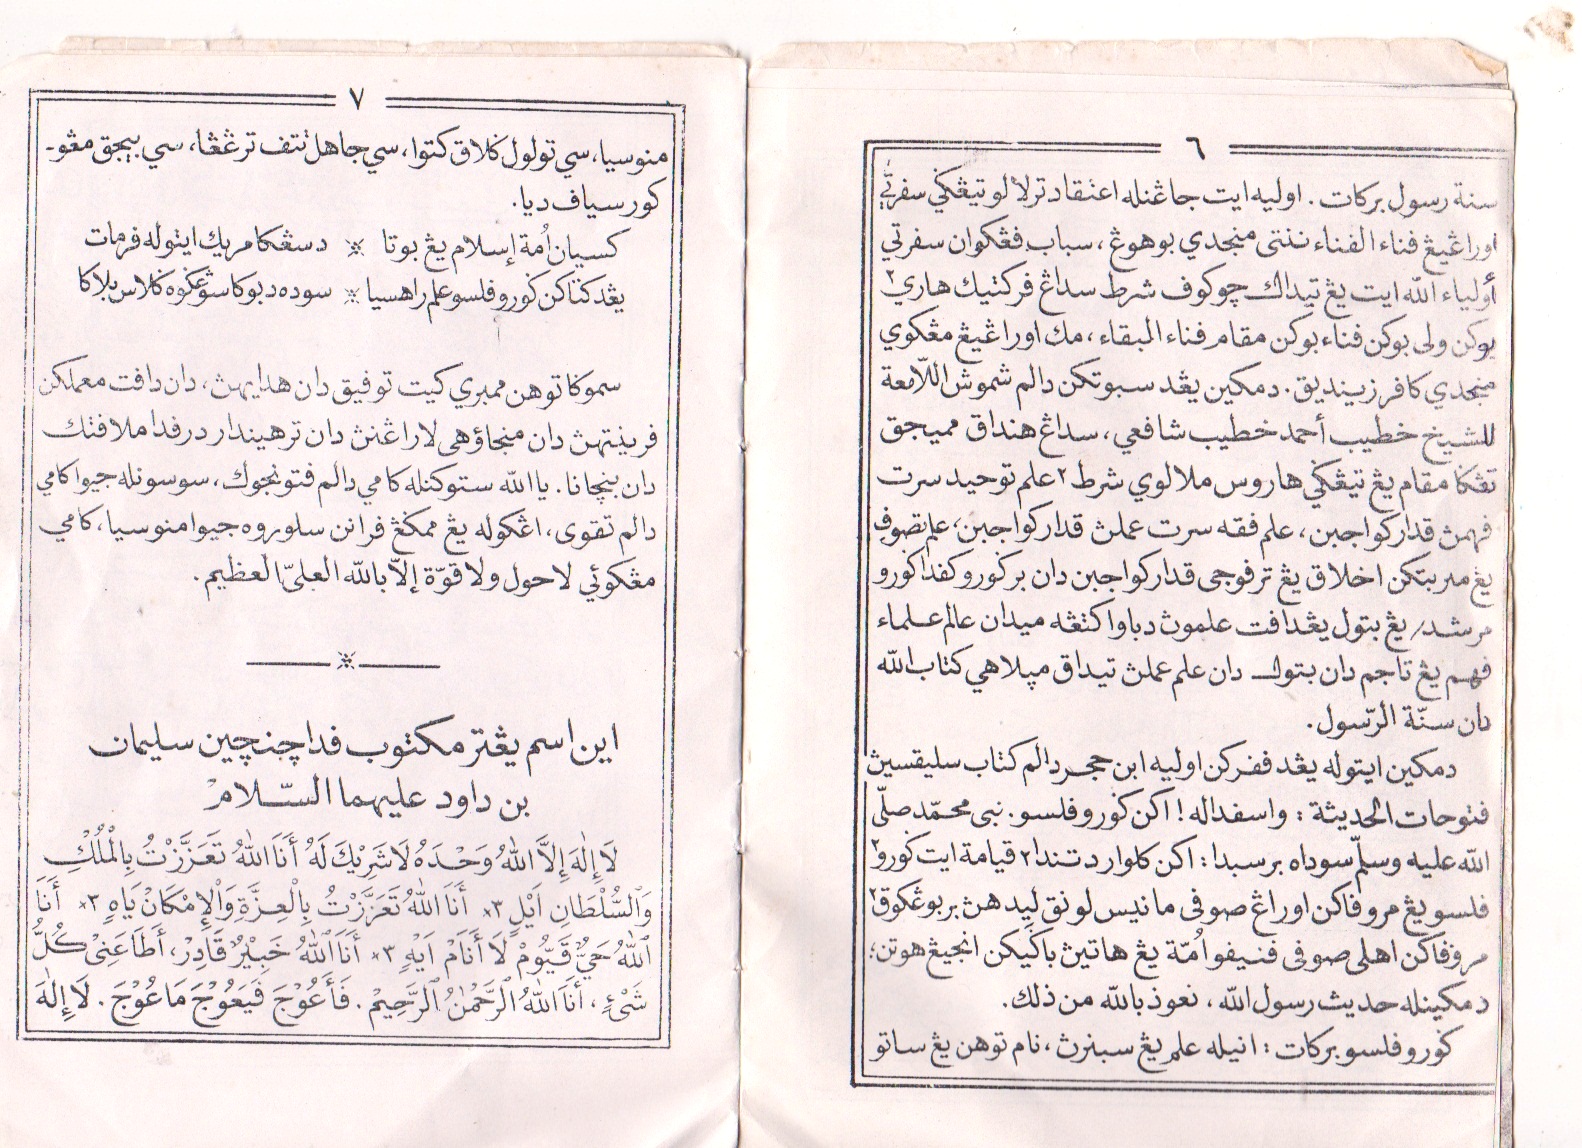 ٦
سنة رسول بركات. اوليه ايت جاڠنله اعتقاد ترلالو تيڠݢي سفرتي
اورڠيڠ فناء الفناء ننتى منجدي بوهوڠ، سباب فڠكوان سفرتي
أولياء الله ايت يڠ تيداك چوكوف شرط سداڠ فركتيك هاري٢
بوكن ولى بوكن فناء بوكن مقام فناء البقاء، مك اورڠيڠ مڠكوي
منجدي كافر زينديق. دمكين يڠد سبوتكن دالم شموش اللّامعة
للشيخ خطيب أحمد خطيب شافعي، سداڠ هنداق مميجق
تڠݢا مقام يڠ تيڠݢي هاروس ملالوي شرط٢ علم توحيد سرت
فهمڽ قدار كواجبن، علم فقه سرت عملڽ قدار كواجبن، علم تصوف
يڠ منربتكن اخلاق يڠ ترفوجى قدار كواجبن دان برݢورو كفدا ݢورو
مرشد/ يڠ بتول يڠدافت علموڽ دباوا كتڠه ميدان عالم علماء
فهم يڠ تاجم دان بتول دان علم عملڽ تيداق مپلاهي كتاب الله
دان سنّة الرّسول.
دمكين ايتوله يڠد ففركن اوليه ابن حجر دالم كتاب سليقسيڽ
فتوحات الحديثة : واسفداله! اكن ݢورو فلسو. نبى محمّد صلّى
الله عليه وسلّم سوداه برسبدا: اكن كلوار دتندا٢ قيامة ايت ݢورو٢
فلسو يڠ مروفاكن اورڠ صوفى مانيس لونق ليدهڽ بربوڠكوق٢
مروفاكن اهلى صوفى فنيفو اُمّة يڠ هاتيڽ باݢيكن انجيڠ هوتن؛
دمكينله حديث رسول الله، نعوذ بالله من ذلك.
ݢورو فلسو بركات : انيله علم يڠ سبنرڽ، نام توهن يڠ ساتو
٧
منوسيا، سي تولول ݢلاق كتوا، سي جاهل تتف ترڠڠا، سي بيجق مڠو-
كور سياف ديا.
كسيان اُمة إسلام يڠ بوتا ※ دسڠكا مريك ايتوله فرمات
يڠد كتاكن ݢورو فلسو علم راهسيا ※ سوده دبوكا سوڠݢوه كلاس بلاكا
سموݢا توهن ممبري كيت توفيق دان هدايهڽ، دان دافت معملكن
فرينتهڽ دان منجاؤهى لاراڠنڽ دان ترهيندار درفدا ملافتك
دان بنچانا. يا الله ستوكنله كامي دالم فتونجوك، سوسونله جيوا كامي
دالم تقوى، اڠكوله يڠ ممݢڠ فرانن سلوروه جيوا منوسيا، كامي
مڠكوئي لاحول ولا قوّة إلاّ بالله العليّ العظيم.
اين اسم يڠتر مكتوب فدا چنچين سليمان
بن داود عليهما السّلام
لَا إِلٰهَ إِلَّا اللهُ وَحْدَهُ لَا شَرِيْكَ لَهُ أَنَا اللهُ تَعَزَّزْتُ بِالْمُلْكِ
وَالسُّلْطَانِ اَيْلٍ ×٣ أَنَا اللهُ تَعَزَّزْتُ بِالْعِزَّةِ وَالْإِمْكَانْ يَاهٍ ×٣ أَنَا
اَللهُ حَيٌّ قَيُّوْمْ لَا أَنَامْ اَيَهٍ ×٣ أَنَا اللهُ خَبِيْرٌ قَادِرْ، أَطَاعَنِيْ كُلُّ
شَيْءٍ، أَنَا اللهُ الرَّحْمٰنُ الرَّحِيْمْ. فَأَعُوْجَ فَيَعُوْجَ مَا عُوْجَ. لَا إِلٰهَ